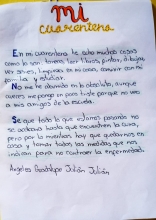 mi
cuarentena
En mi cuarentena he echo muchas cosas
como lo son tareas, leer libros, pintar, dibujar,
ver series, limpiar en mi casa, convivir con mi
familia y estudiar.
No me he aburrido en lo absoluto, aunque
aveces me pongo un poco triste porque no veo
a mis amigos de la escuela.
Se que todo lo que estamos pasando no
se acabará hasta que encuentren la cura,
pero por lo mientras hay que quedarnos en
casa y tomar todas las medidas que nos
indican para no contraer la enfermedad.
Angeles Guadalupe Julián Julián